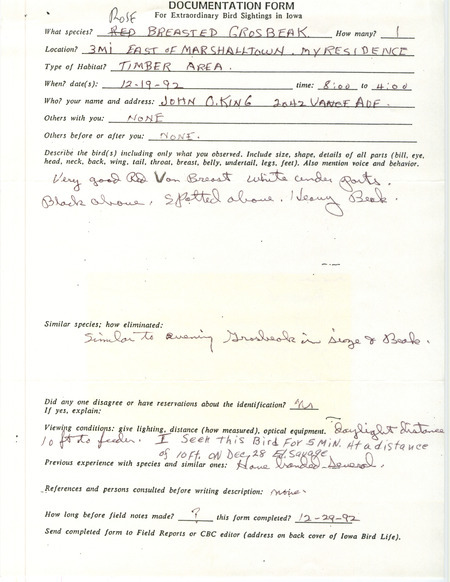 DOCUMENTATION FORM
For Extraordinary Bird Sightings in Iowa
What species? Rose BREASTED GROSBEAK. How many? 1
Location? 3MI EAST OF MARSHALLTOWN. MY RESIDENCE
Type of Habitat? TIMBER AREA.
When? date(s): 12-19-92 time: 8:00 to 4:00
Who? your name and address: JOHN C. KING 2042 VANCE AVE.
Others with you: NONE
Others before or after you: NONE.
Describe the bird(s) including only what you observed. Include size, shape, details of all parts (bill, eye,
head, neck, back, wing, tail, throat, breast, belly, undertail, legs, feet). Also mention voice and behavior.
Very good Red V on Breast white under parts.
Black above. Spotted above. Heavy Beak.
Similar species; how eliminated:
Similar to evening Grosbeak in size & Beak.
Did any one disagree or have reservations about the identification? No
If yes, explain:
Viewing conditions: give lighting, distance (how measured), optical equipment. Daylight distance
10 ft to feeder. I SEEN THIS BIRD FOR 5 MIN. At a distance
of 10 FT. ON DEC, 28 E. Savage
Previous experience with species and similar ones: Have banded several.
References and persons consulted before writing description: none.
How long before field notes made? ? this form completed? 12-29-92
Send completed form to Field Reports or CBC editor (address on back cover of Iowa Bird Life).